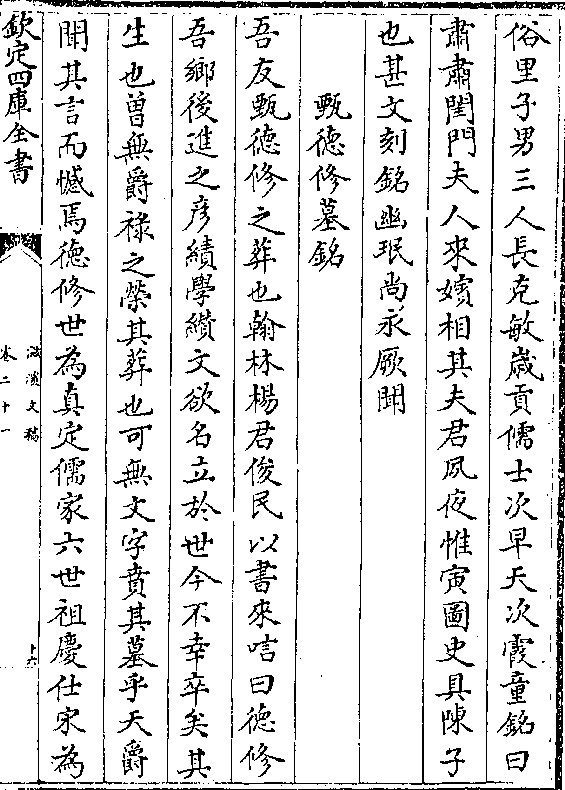 俗里子男三人長克敏歳貢儒士次早夭次霞童銘曰
肅肅閨門夫人來嬪相其夫君夙夜惟寅圖史具陳子
也甚文刻銘幽珉尚永厥聞
甄德修墓銘
吾友甄德修之葬也翰林楊君俊民以書來唁曰德修
吾鄉後進之彦績學纘文欲名立於世今不幸卒矣其
生也曽無爵禄之榮其葬也可無文字賁其墓乎天爵
聞其言而憾焉德修世為真定儒家六世祖慶仕宋為
欽定四庫全書
滋溪文稿
卷二十一
十六